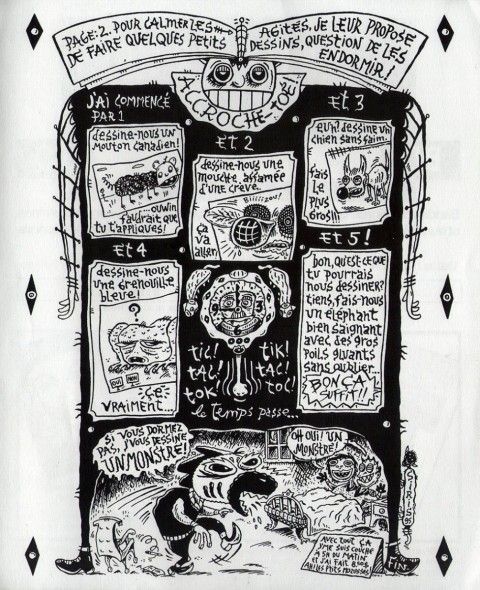 PAGE:2. POUR CALMER LES
DE FAIRE QUELQUES PETITS
AGITÉS, JE LEUR PROPOSE
DESSINS, QUESTION DE LES
ENDORMIR!
ACCROCHE-TOÉ!
J'AI COMMENCÉ
PAR 1
dessine-nous un
mouton canadien!
ouwin
faudrait que
tu t'appliques!
et 2
dessine-nous une
mouche, affamée
d'une crêve.
Biiiizzou!
ça
va
aller
et 3
euh! dessine un
chien sans faim.
fais
le
plus
gros!!!
et 4
dessine-nous
une grenouille
bleue!
?
OUI
NON
ÇÉ
VRAIMENT...
tic! tik!
tac! tac!
tok! toc!
le temps passe...
et 5!
bon, qu'est-ce que
tu pourrais
nous dessiner?
tiens, fais-nous
un éléphant
bien saignant
avec des gros
poils gluants
sans oublier...
BON ÇA
SUFFIT!!
SI VOUS DORMEZ
PAS, J'VOUS DESSINE
UN MONSTRE!
OH OUI! UN
MONSTRE!
SIRIS
AVEC TOUT ÇA
J'ME SUIS COUCHÉ
À 5H DU MATIN
ET J'AI FAIT 8.50$
AH! LES P'TITS
FIN